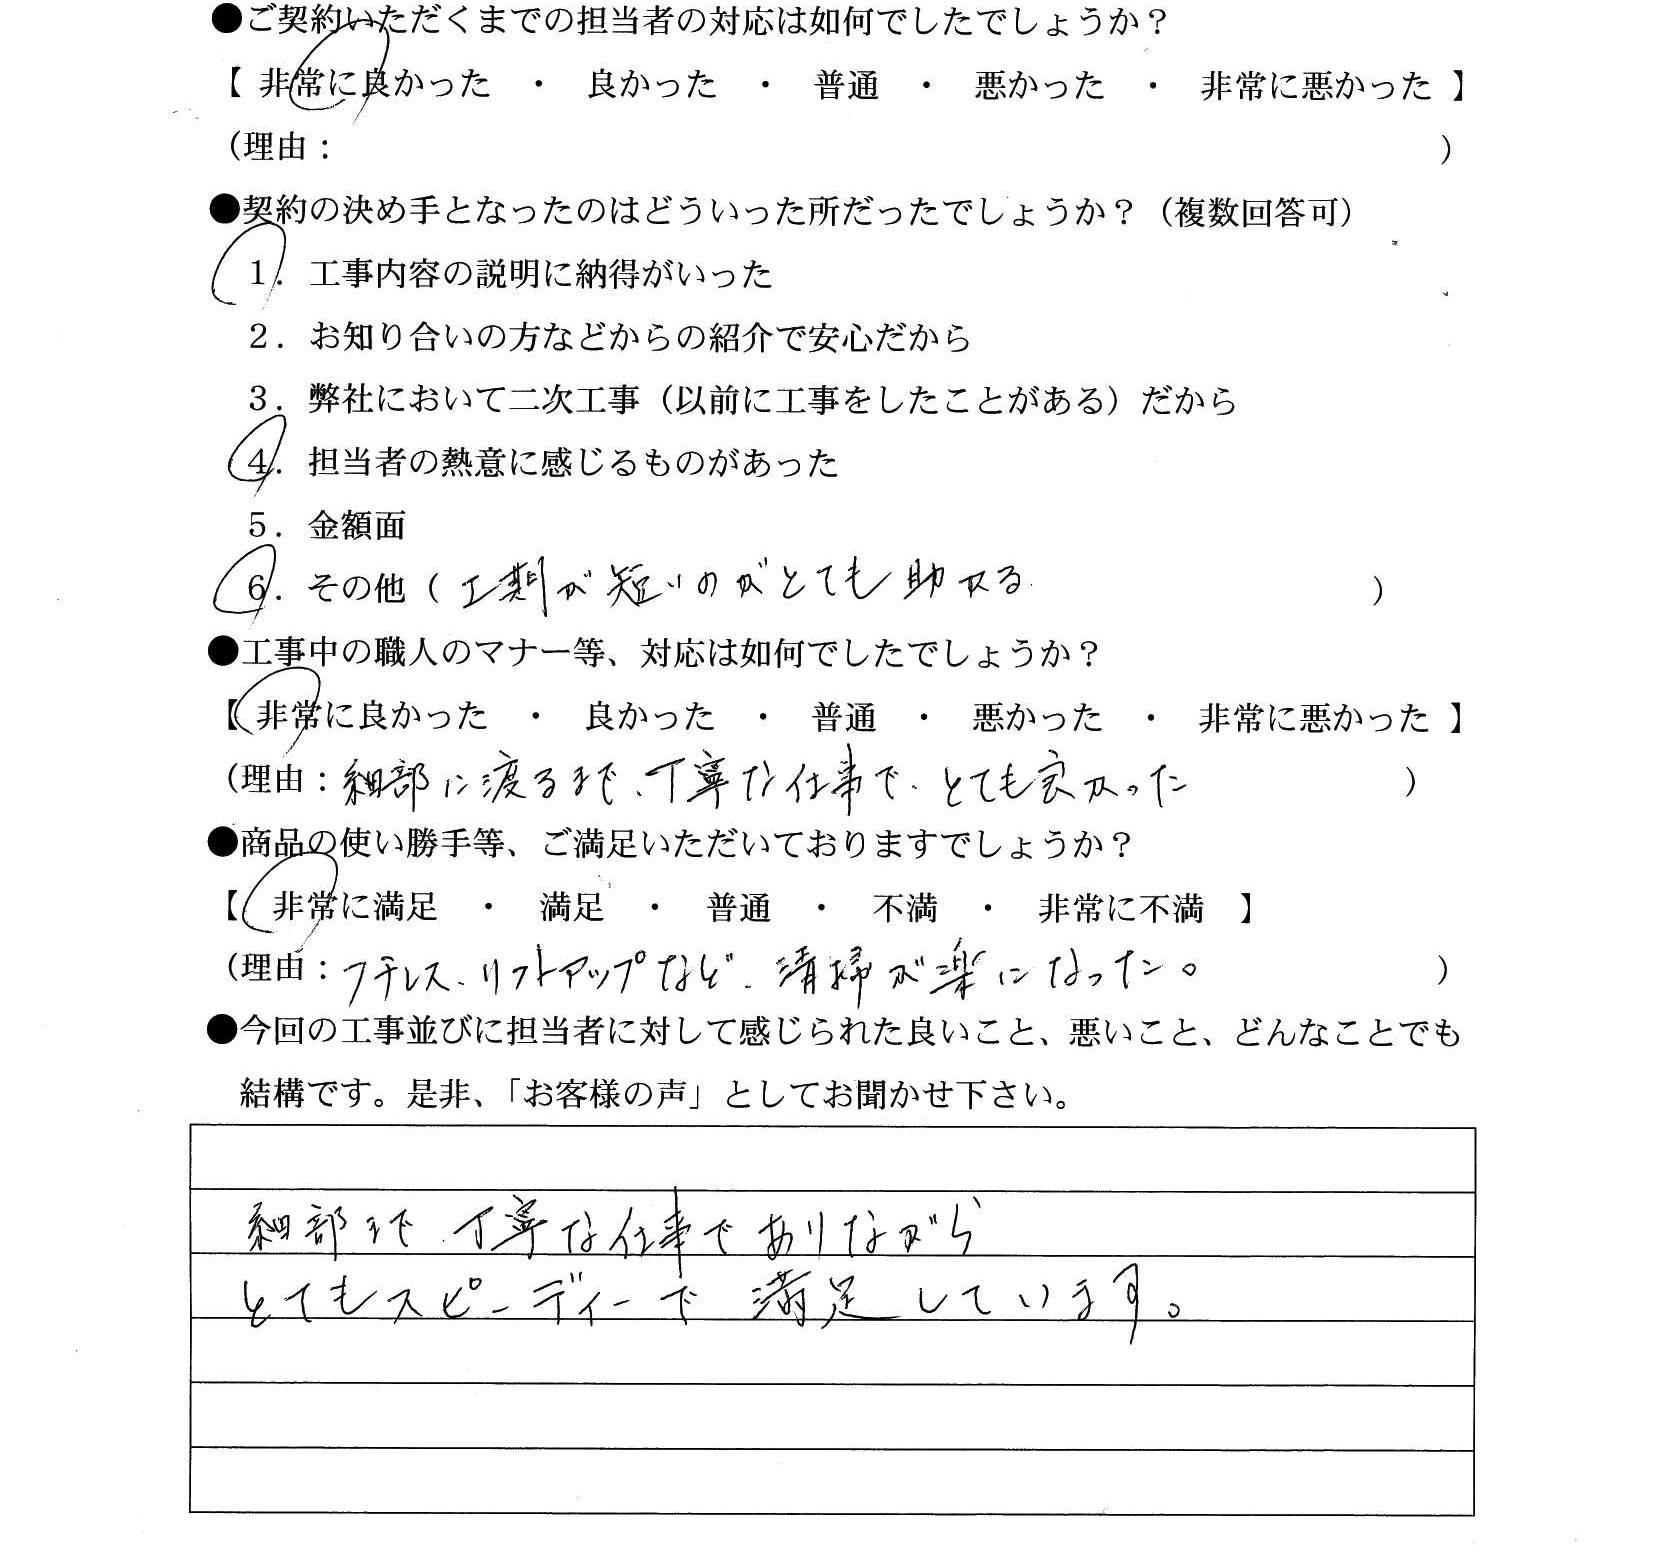 ●ご契約いただくまでの担当者の対応は如何でしたでしょうか？
【 非常に良かった ・ 良かった ・ 普通 ・ 悪かった ・ 非常に悪かった 】
（理由： ）
●契約の決め手となったのはどういった所だったでしょうか？（複数回答可）
１．工事内容の説明に納得がいった
２．お知り合いの方などからの紹介で安心だから
３．弊社において二次工事（以前に工事をしたことがある）だから
４．担当者の熱意に感じるものがあった
５．金額面
６．その他（ 工期が短いのがとても助かる ）
●工事中の職人のマナー等、対応は如何でしたでしょうか？
【 非常に良かった ・ 良かった ・ 普通 ・ 悪かった ・ 非常に悪かった 】
（理由：細部に渡るまで、丁寧な仕事で、とても良かった ）
●商品の使い勝手等、ご満足いただいておりますでしょうか？
【 非常に満足 ・ 満足 ・ 普通 ・ 不満 ・ 非常に不満 】
（理由：フチレス、リフトアップなど、清掃が楽になった。 ）
●今回の工事並びに担当者に対して感じられた良いこと、悪いこと、どんなことでも
結構です。是非、「お客様の声」としてお聞かせ下さい。
細部まで、丁寧な仕事でありながら
とてもスピーディーで 満足しています。